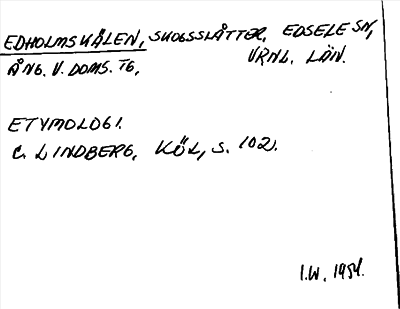 EDHOLMSKÅLEN, SKOGSSLÅTTER, EDSELE SN,
ÅNG. V. DOMS. TG, VRNL. LÄN.
ETYMOLOGI.
C. LINDBERG, KÖL, S. 102.
I.W. 1954.